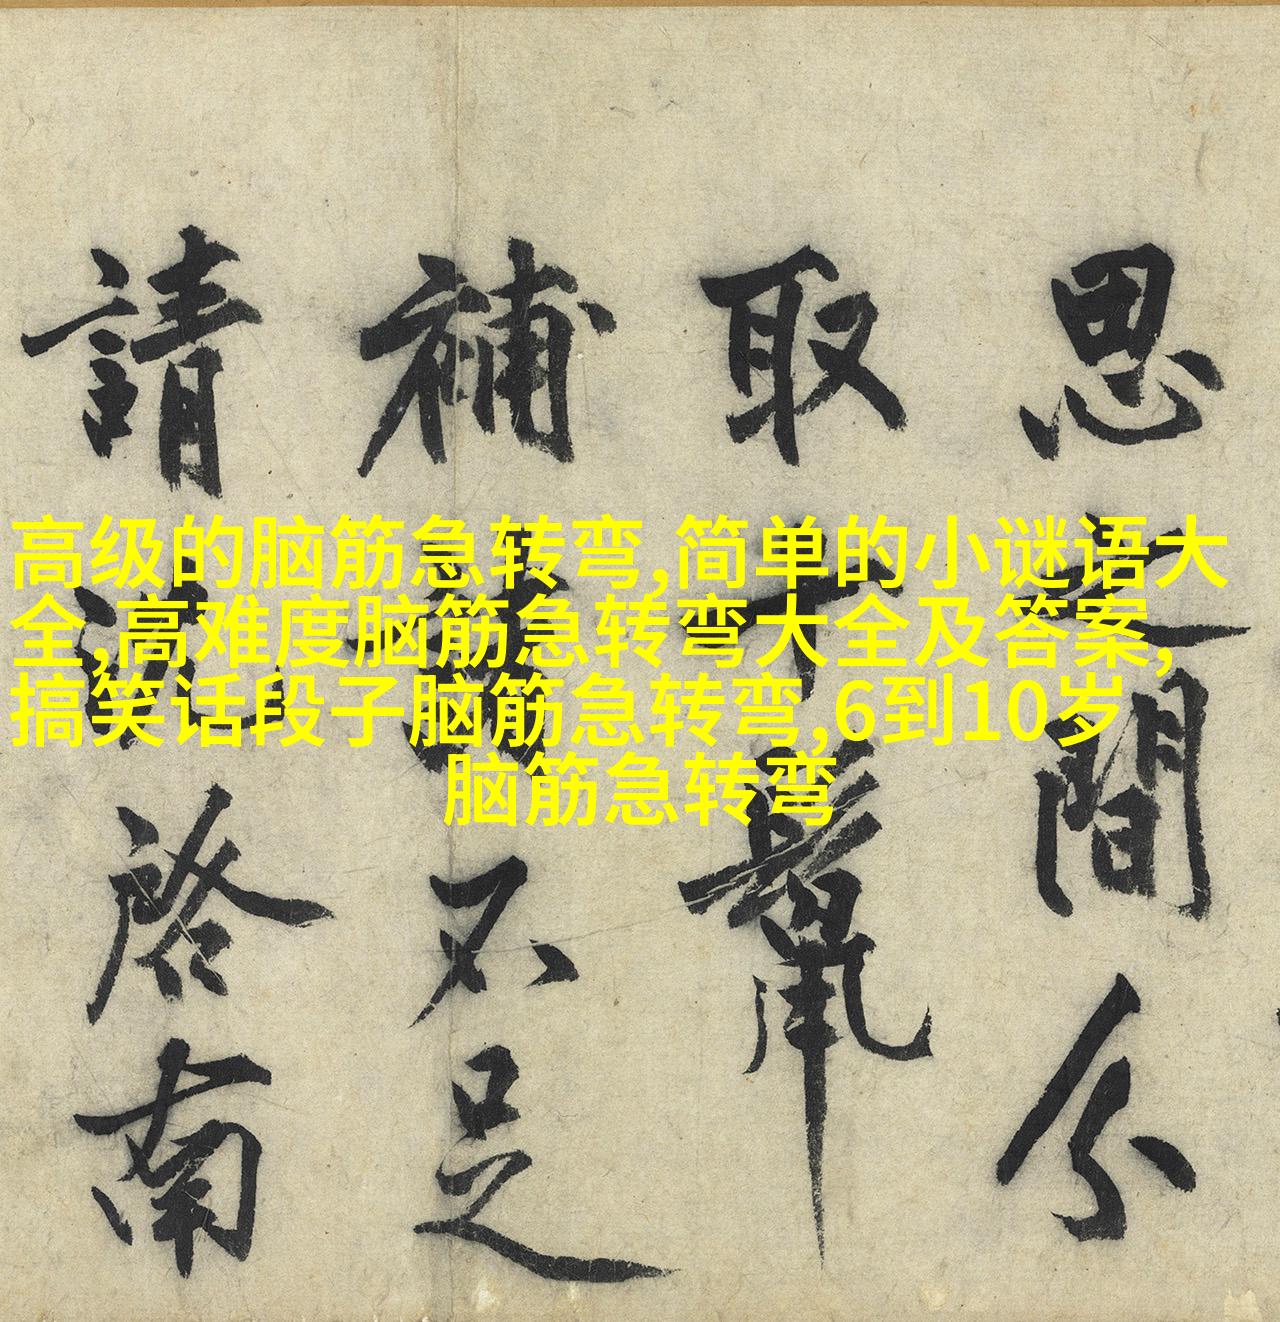 高级的脑筋急转弯,简单的小谜语大
全,高难度脑筋急转弯大全及答案,
搞笑话段子脑筋急转弯,6到10岁
脑筋急转弯
思之間分
取十鬣
補諸不足
請沈啓南